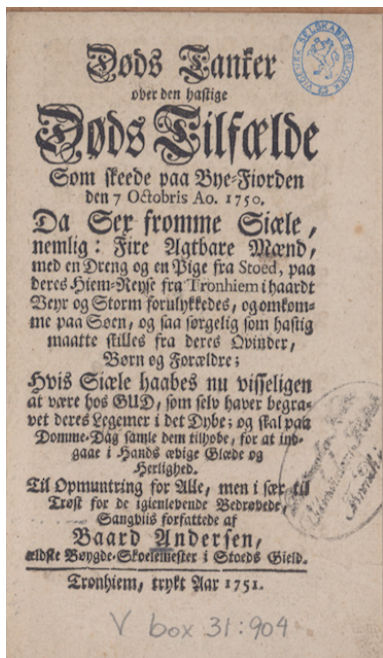 Døds Tanker
over den hastige
Døds Tilfælde
Som skeede paa Bye-Fiorden
den 7 Octobris Ao. 1750.
Da Sex fromme Siæle,
nemlig: Fire Agtbare Mænd,
med en Dreng og en Pige fra Stoed, paa
deres Hiem-Reyse fra Tronhiem i haardt
Veyr og Storm forulykkedes, og omkom-
me paa Søen, og saa sørgelig som hastig
maatte skilles fra deres Qvinder,
Børn og Forældre;
Hvis Siæle haabes nu visseligen
at være hos GUD, som selv haver begra-
vet deres Legemer i det Dybe; og skal paa
Domme-Dag samle dem tilhobe, for at ind-
gaae i Hands ævige Glæde og
Herlighed.
Til Opmuntring for Alle, men i sær til
Trøst for de igienlevende Bedrøvede,
Sangviis forfattede af
Baard Andersen,
ældste Bøygde-Skoelemester i Stoeds Gield.
Tronhiem, trykt Aar 1751.
V box 31:904